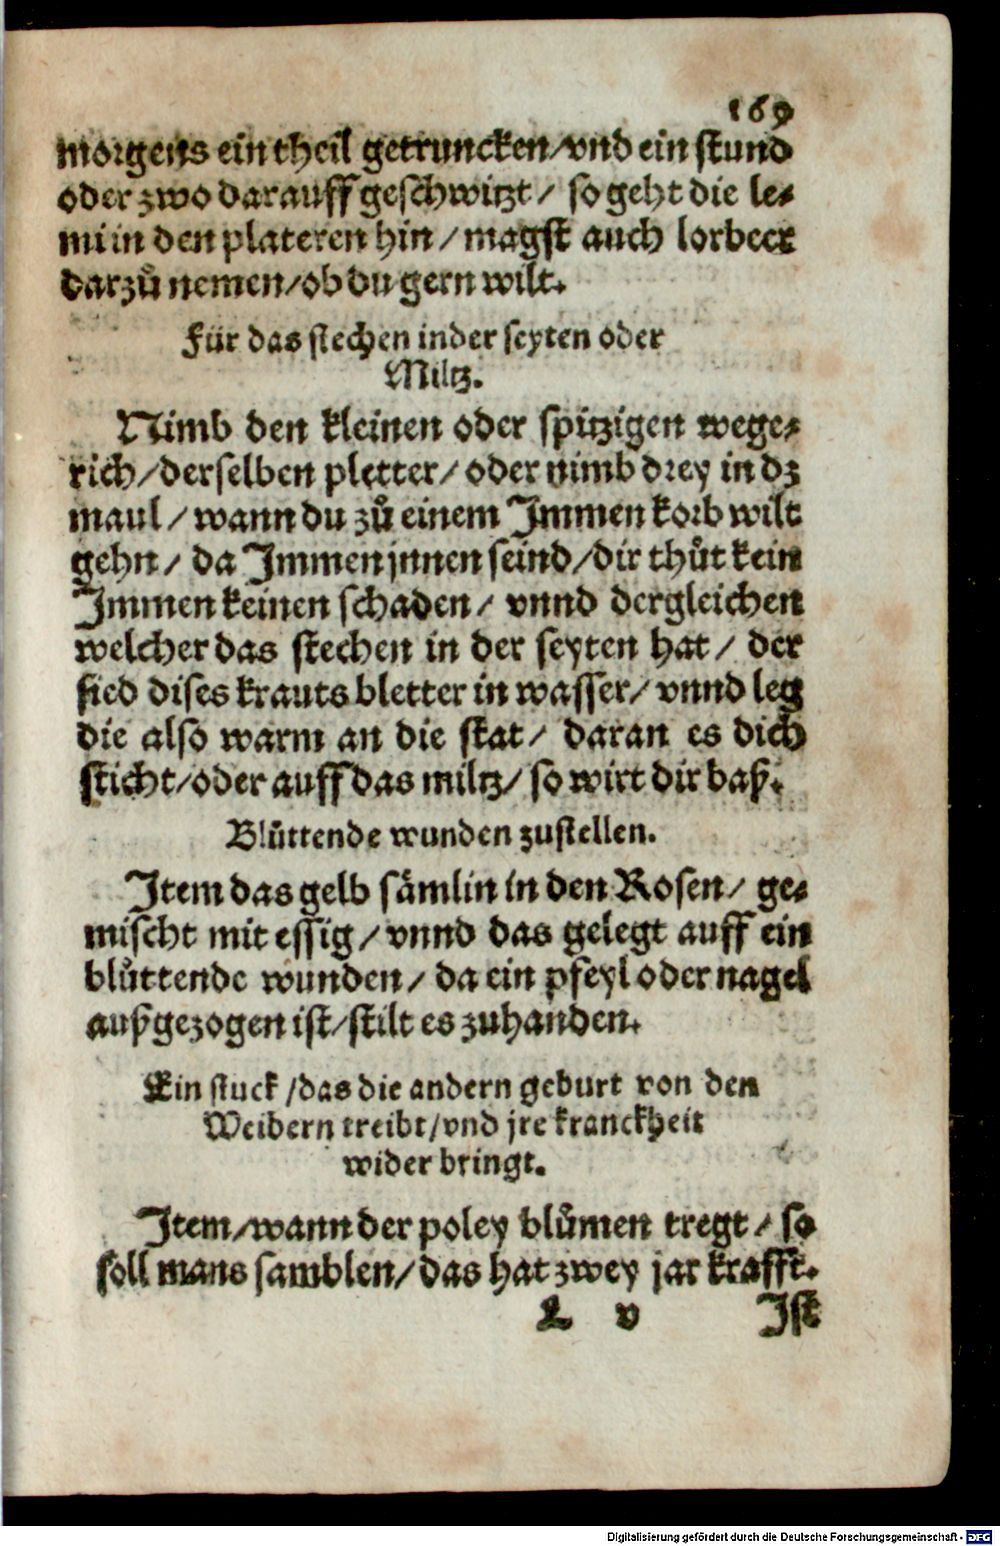 169
morgens ein theil getruncken/vnd ein stund
oder zwo darauff geschwitzt/ so geht die le⸗
mi in den plateren hin/magst auch lorbeer
darzů nemen/ob du gern wilt.
Für das stechen inder seyten oder
Miltz.
Nimb den kleinen oder spitzigen wege⸗
rich/derselben pletter/oder nimb drey in dz
maul/wann du zů einem Immen korb wilt
gehn/ da Immen jnnen seind/dir thůt kein
Immen keinen schaden/ vnnd dergleichen
welcher das stechen in der seyten hat/ der
sied dises krauts bletter in wasser/vnnd leg
die also warm an die stat/ daran es dich
sticht/oder auff das miltz/so wirt dir baß.
Blůttende wunden zustellen.
Item das gelb sämlin in den Rosen/ ge⸗
mischt mit essig/vnnd das gelegt auff ein
blůttende wunden/da ein pfeyl oder nagel
außgezogen ist/stilt es zuhanden.
Ein stuck/das die andern geburt von den
Weibern treibt/vnd jre kranckheit
wider bringt.
Item/wann der poley blůmen tregt/so
soll mans samblen/das hat zwey jar krafft.
L v Ist
Digitalisierung gefördert durch die Deutsche Forschungsgemeinschaft - DFG